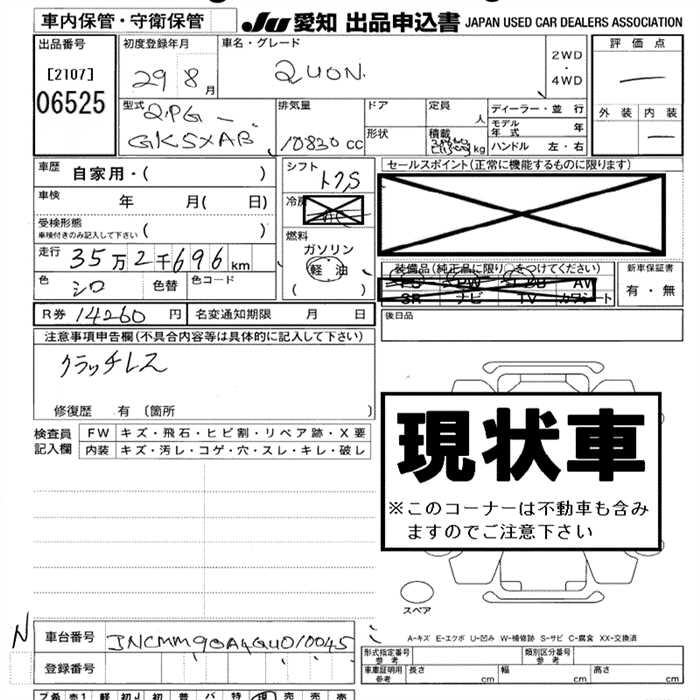 車内保管・守衛保管
JU 愛知 出品申込書 JAPAN USED CAR DEALERS ASSOCIATION
出品番号
[2107]
06525
初度登録年月
29 8 月
車名・グレード
QUON
2WD
・
4WD
評価点
外装 内装
型式
QPG-
GK5XAB
排気量
10830 cc
ドア
形状
定員
人
積載
kg
ディーラー・並 行
モデル
年 式
年
ハンドル 左・右
車歴
自家用・( )
車検
年 月( 日)
受検形態
車検付きのみ記入して下さい ( )
走行
35万2千696 km
色
シロ
色替
色コード
シフト
冷房
燃料
ガソリン
軽 油
( )
セールスポイント(正常に機能するものに限ります)
装備品(純正品に限り)をつけてください
PS PW AV
SR ナビ TV カワシート
新車保証書
有・無
後日品
R券 14260 円
名変通知期限 月 日
注意事項申告欄(不具合内容等は具体的に記入して下さい)
クラッチレス
修復歴 有 〔箇所 〕
検査員
記入欄
FW キズ・飛石・ヒビ割・リペア跡・X要
内装 キズ・汚レ・コゲ・穴・スレ・キレ・破レ
現状車
※このコーナーは不動車も含み
ますのでご注意下さい
スペア
A-キズ E-エクボ U-凹み W-補修跡 S-サビ C-腐食 XX-交換済
N
車台番号 JNCMM90A4GU010045
登録番号
形式指定番号
参考
類別区分番号
参考
車庫証明用
参考
長さ cm
幅 cm
高さ cm